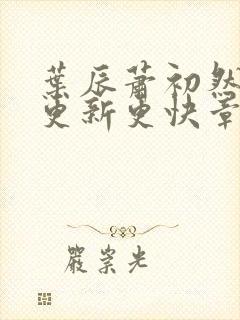 葉辰蕭初然
更新更快章
嚴崇光